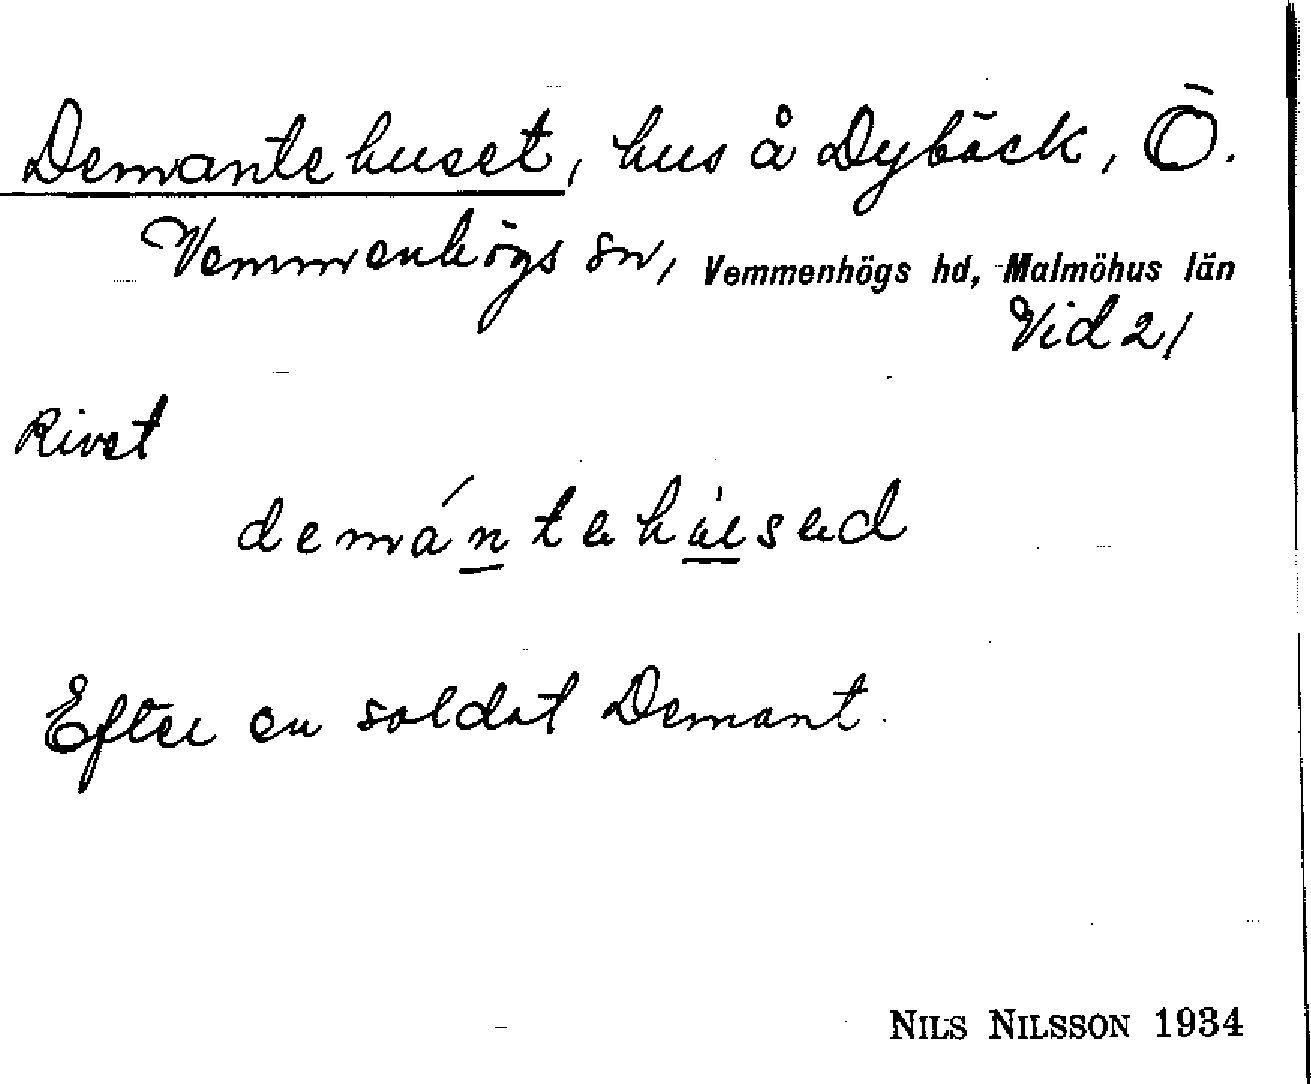 Demantehuset, hus å Dybäck, Ö.
Vemmenhögs sn, Vemmenhögs hd, Malmöhus län
Vid 21
Rivet
Efter en soldat Demant.
NILS NILSSON 1934